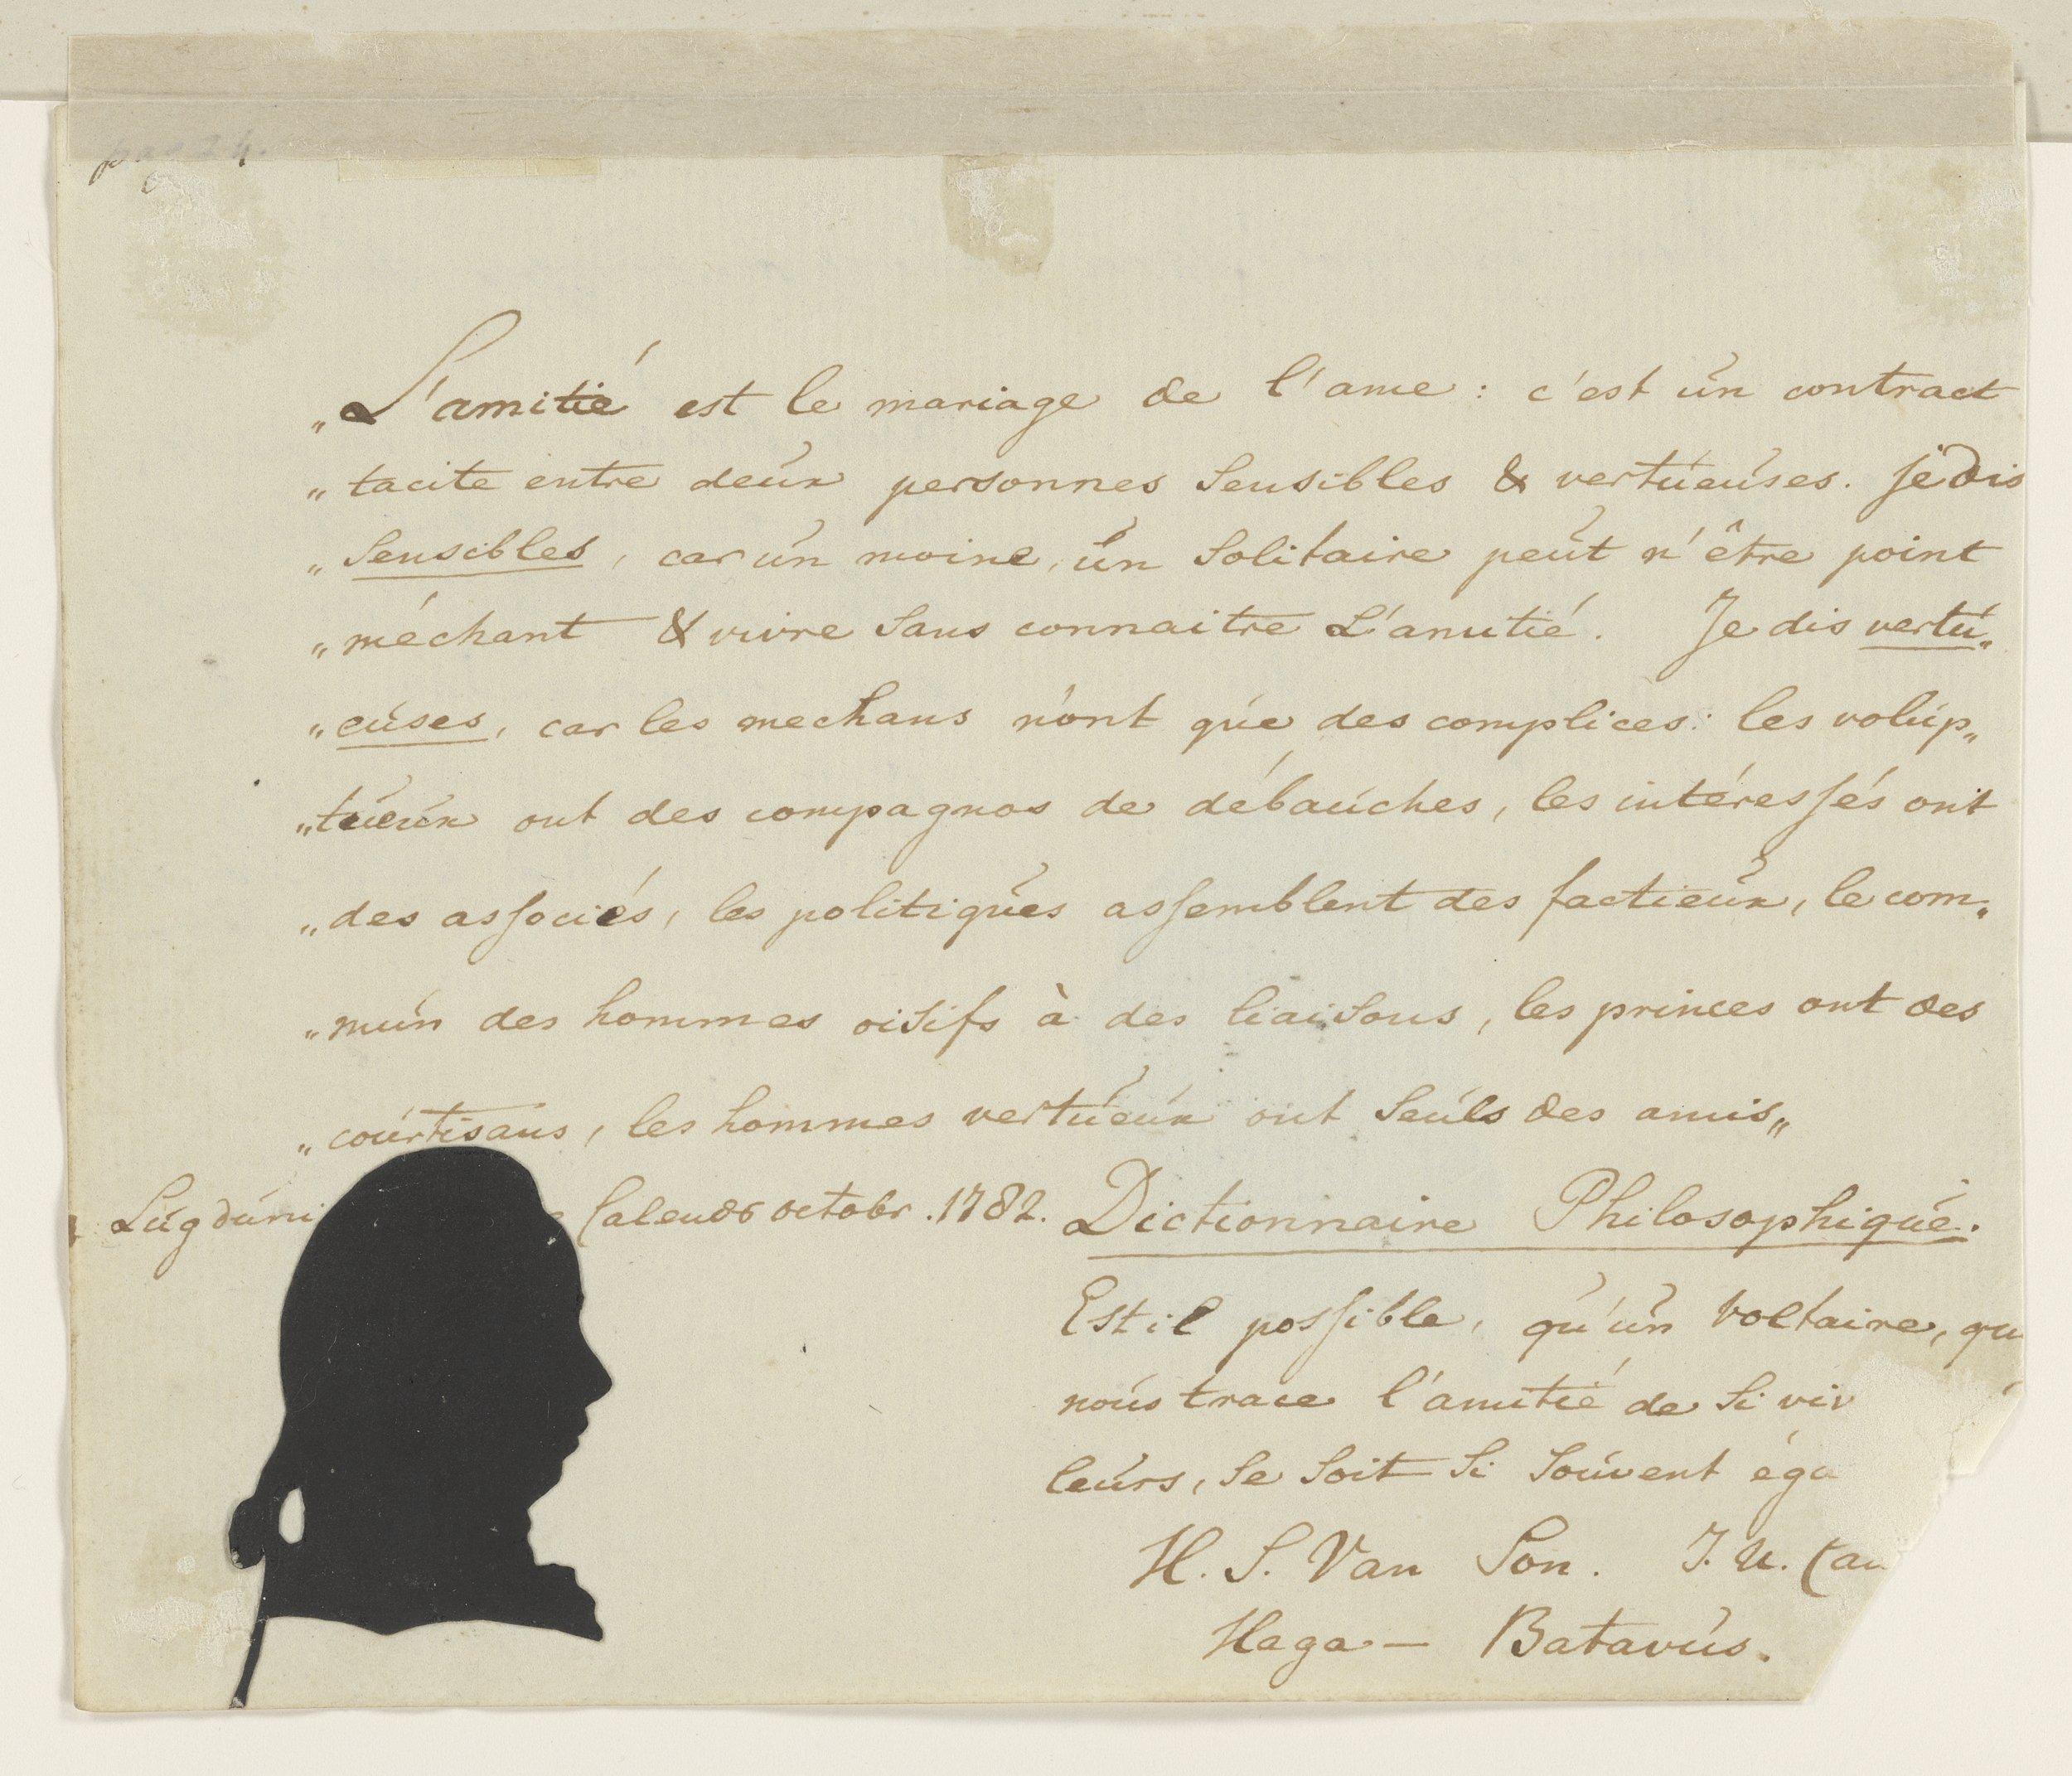 pag 24.
„L'amitié est le mariage de l'ame : c'est un contract
„ tacite entre deux personnes Sensibles & vertueuses. Je dis
„ Sensibles, car un moine, un Solitaire peut n'être point
„ méchant & vivre Sans connaitre L'amitié. Je dis vertu„
„ euses, car les mechans n'ont que des complices : les volup„
„tueux ont des compagnos de débauches, les intéressés ont
„ des associés, les politiques assemblent des factieux, le com„
„ mun des hommes oisifs à des liaisons, les princes ont des
„ courtisans, les hommes vertueux ont Seuls des amis„
Lugduni Calends octobr. 1782. Dictionnaire Philosophique.
Est il possible, qu'un Voltaire, qu
nous trace l'amitié de Si viv
leurs, Se Soit Si Souvent éga
H. S. Van Son. J. U. Can
Haga — Batavus.